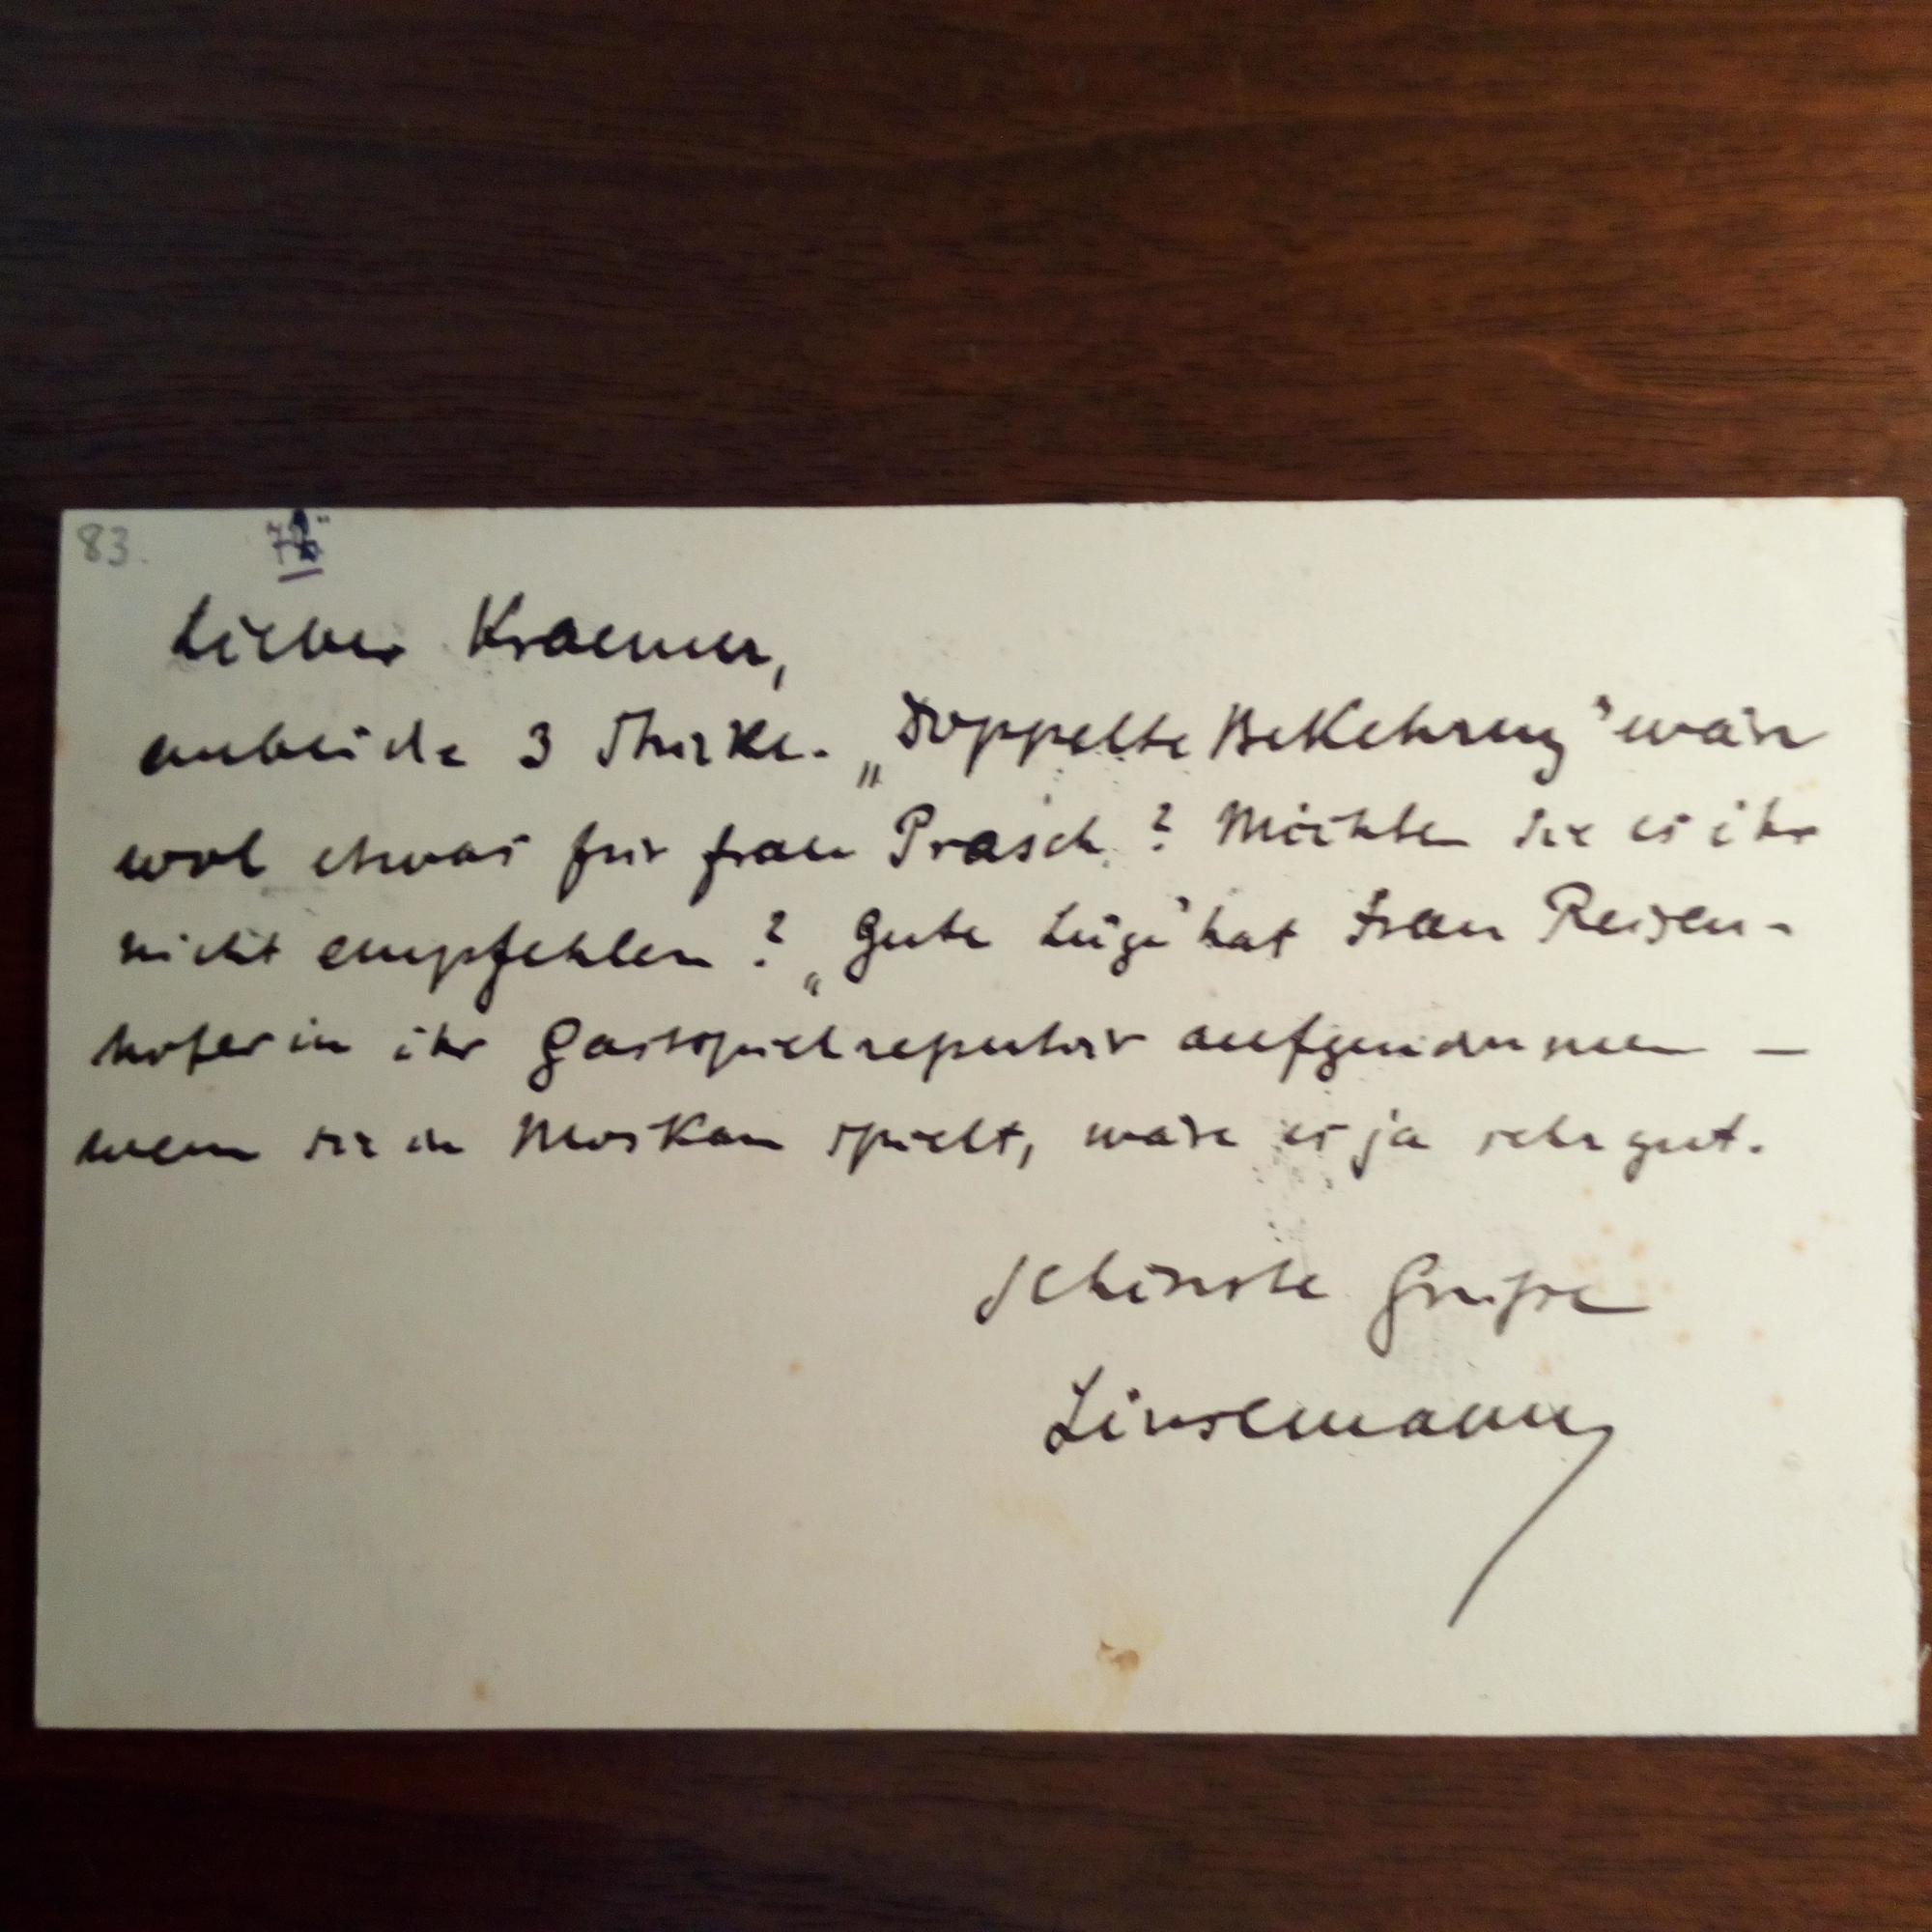 83.
Lieber Kraemer,
anbei die 3 Stücke. „Doppelte Bekehrung" wäre
wol etwas für Frau Prasch? Möchten Sie es ihr
nicht empfehlen? „Gute Lüge" hat Frau Reisen-
hoferin ihr Gastspielrepertoir aufgenommen —
wenn sie in Moskau spielt, wäre es ja sehr gut.
Schönste Grüße
Linsemann